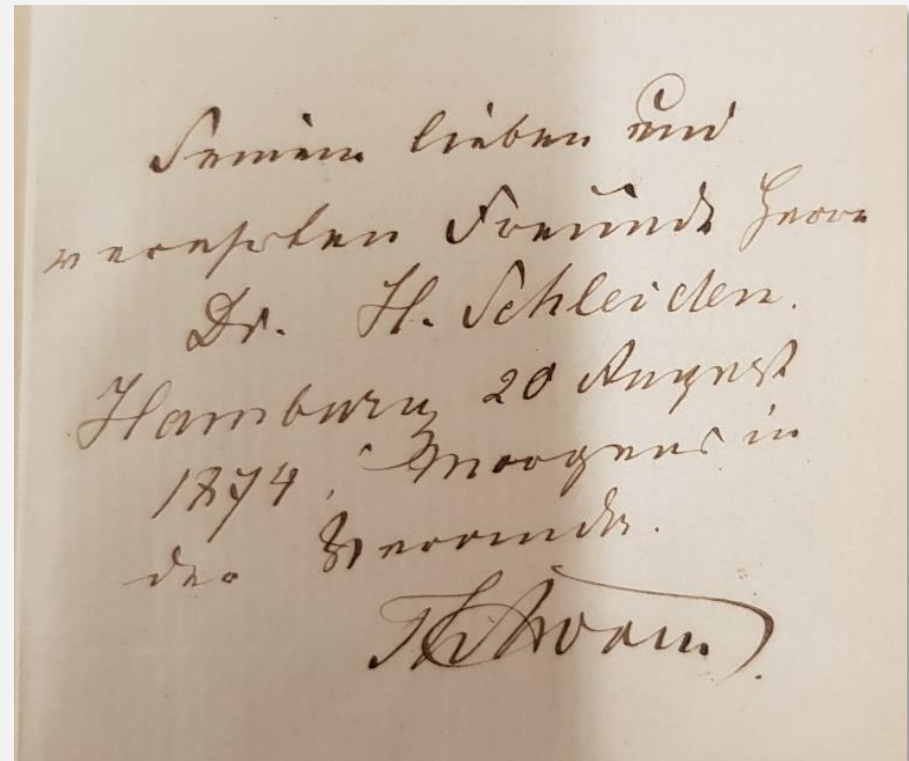 Seinem lieben und
verehrten Freunde Herrn
Dr. H. Schleiden.
Hamburg 20 August
1874, Morgens in
der Veranda.
ThStorm